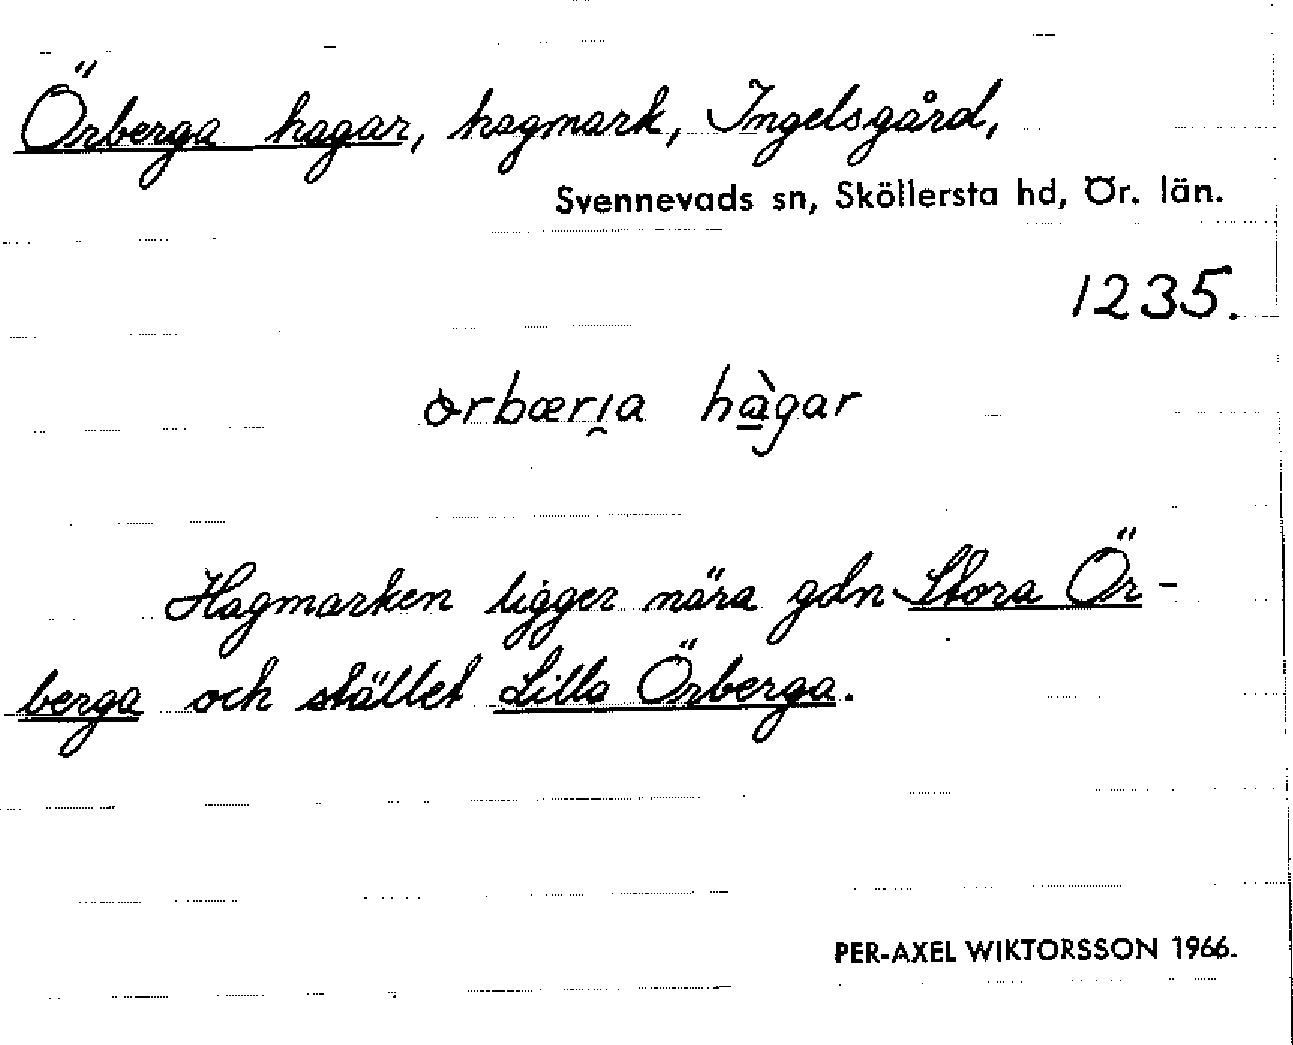 Örberga hagar, hagmark, Ingelsgård,
Svennevads sn, Sköllersta hd, Ör. län.
1235.
ɷrbœrı̯a hàgar
Hagmarken ligger nära gdn Stora Ör-
berga och stället Lilla Örberga.
PER-AXEL WIKTORSSON 1966.